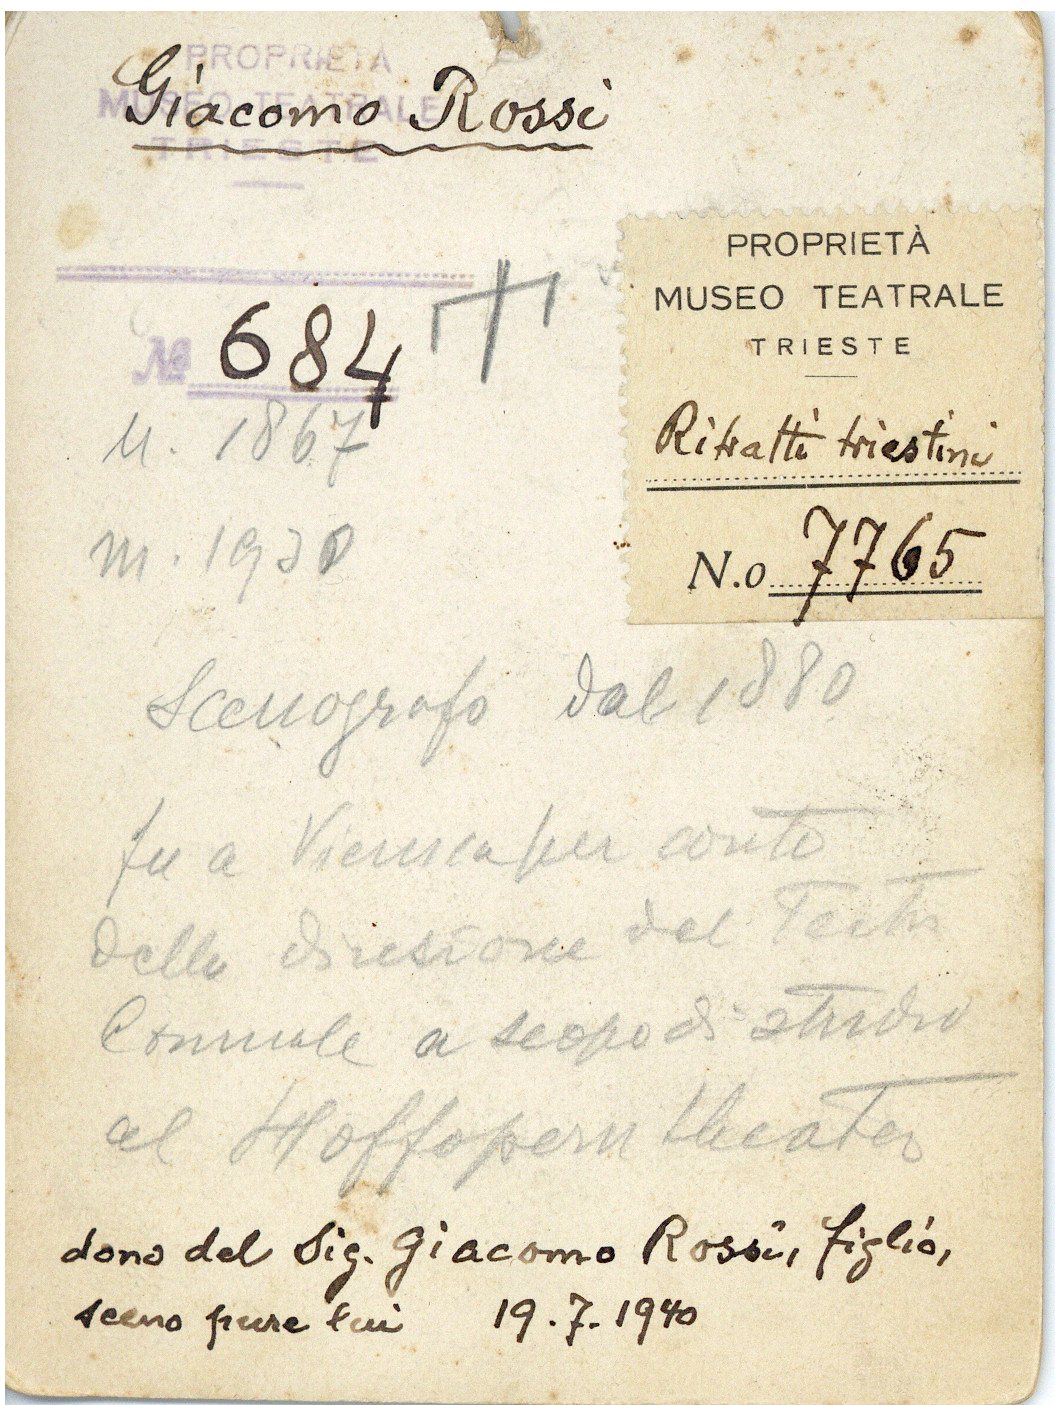 PROPRIETÀ
MUSEO TEATRALE
TRIESTE
Giacomo Rossi
PROPRIETÀ
MUSEO TEATRALE
TRIESTE
Ritratti triestini
N.o 7765
№ 684
n. 1867
m. 1930
Scenografo dal 1880
fu a Vienna per conto
della direzione del Teatr
Comunale a scopo di studio
al Hoffopern theater
dono del Sig. Giacomo Rossi, figlio,
sceno pure lui 19.7.1940